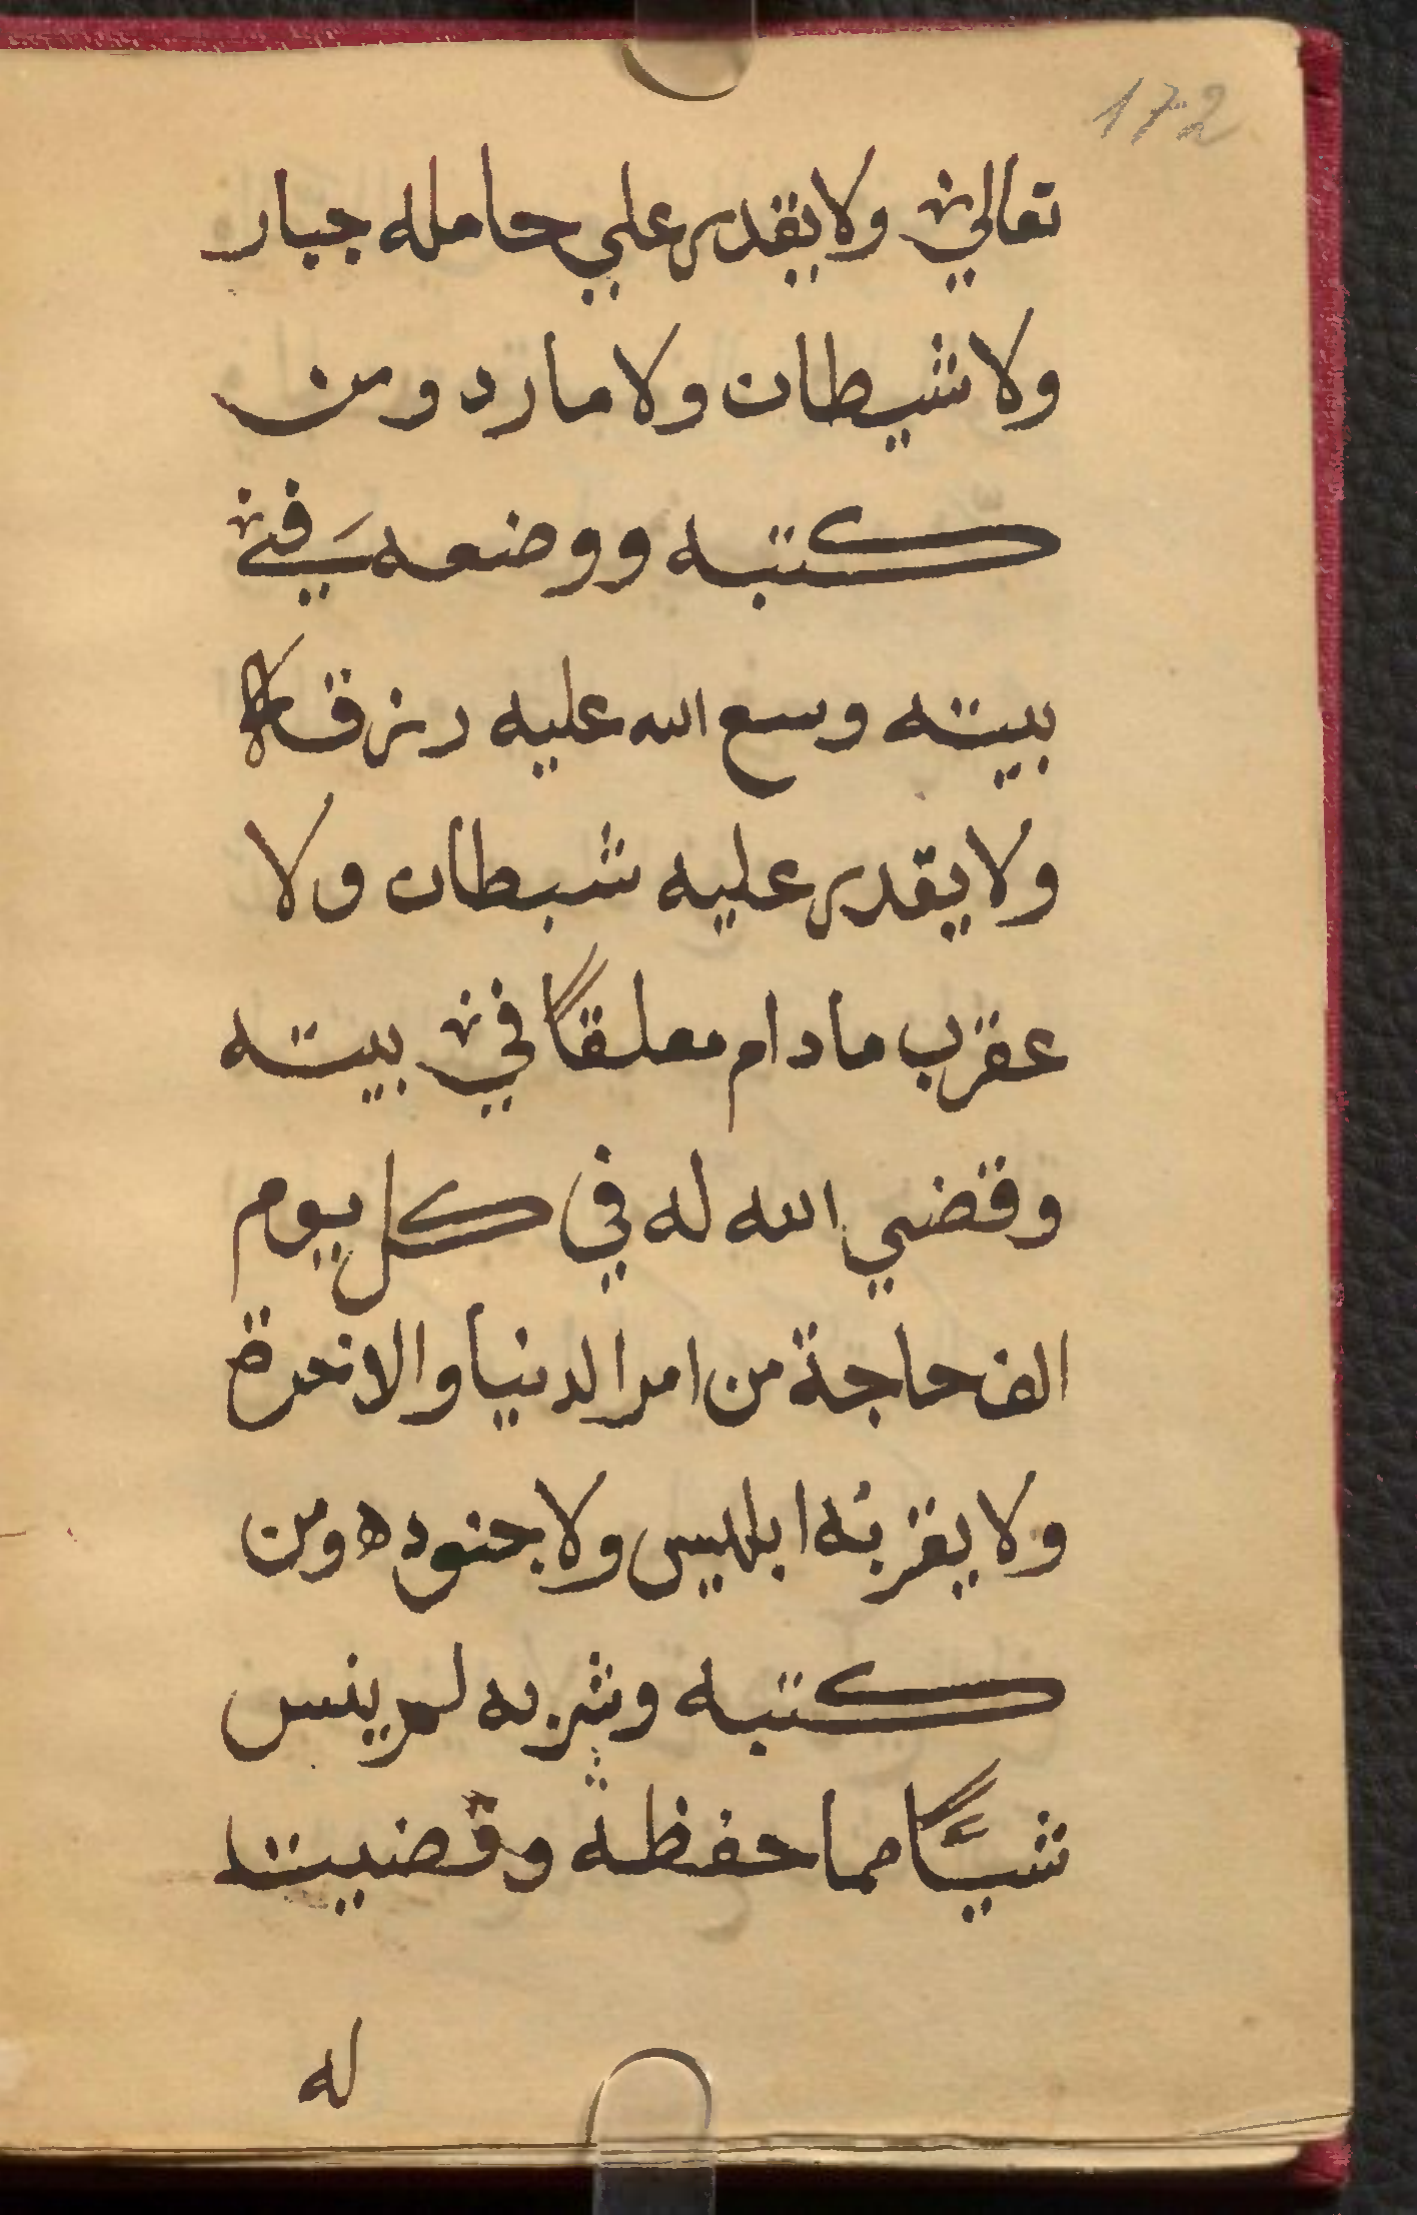 172
تعالي ولا يقدر علي حامله جبار
ولا شيطان ولا مارد ومن
كتبه ووضعه في
بيته وسع الله عليه رزقه
ولا يقدر عليه شيطان ولا
عقرب مادام معلقاً في بيته
وقضي الله له في كل يوم
الف حاجة من امر الدنيا والاخرة
ولا يقربه ابليس ولا جنوده ومن
كتبه وشربه لم ينس
شيئاً مما حفظه وقضيت
له